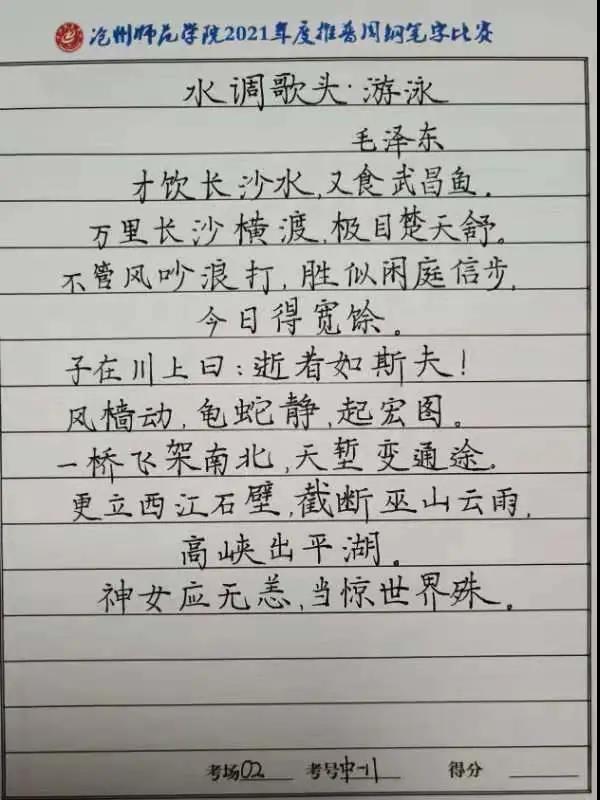 沧州师范学院2021年度推普周钢笔字比赛
水调歌头·游泳
毛泽东
才饮长沙水,又食武昌鱼.
万里长沙横渡,极目楚天舒。
不管风吵浪打,胜似闲庭信步,
今日得宽馀。
子在川上曰:逝者如斯夫!
风樯动,龟蛇静,起宏图。
一桥飞架南北,天堑变通途.
更立西江石壁,截断巫山云雨,
高峡出平湖。
神女应无恙,当惊世界殊。
考场02 考号中-11 得分